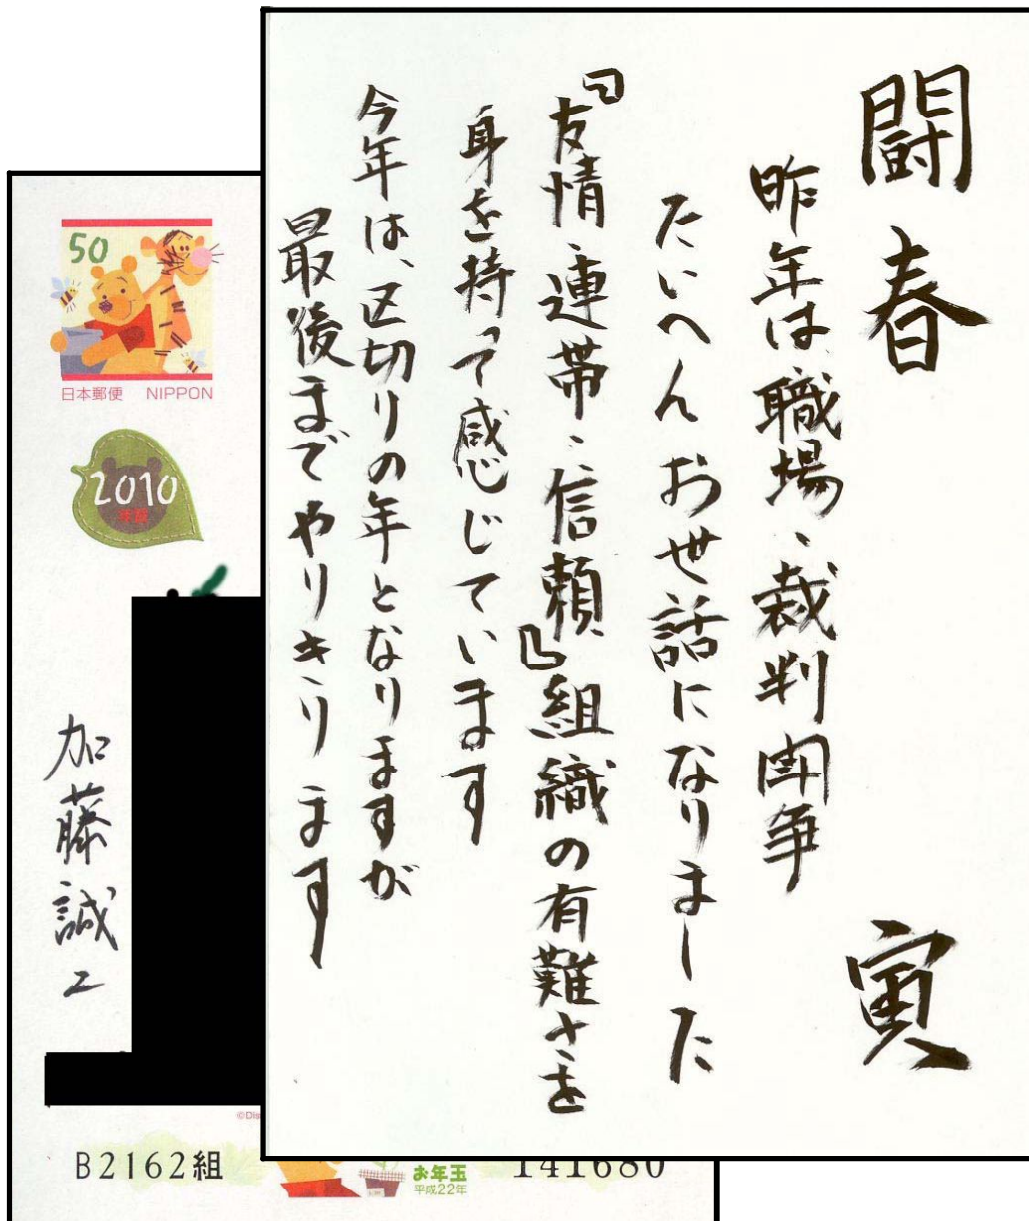 闘春
寅
昨年は、職場、裁判闘争
たいへんお世話になりました
「友情、連帯、信頼」組織の有難さを
身を持って感じています
今年は、区切りの年となりますが
最後までやりきります
50
日本郵便 NIPPON
2010
年賀
加藤誠二
©Dis
B2162組
お年玉
平成22年
141680